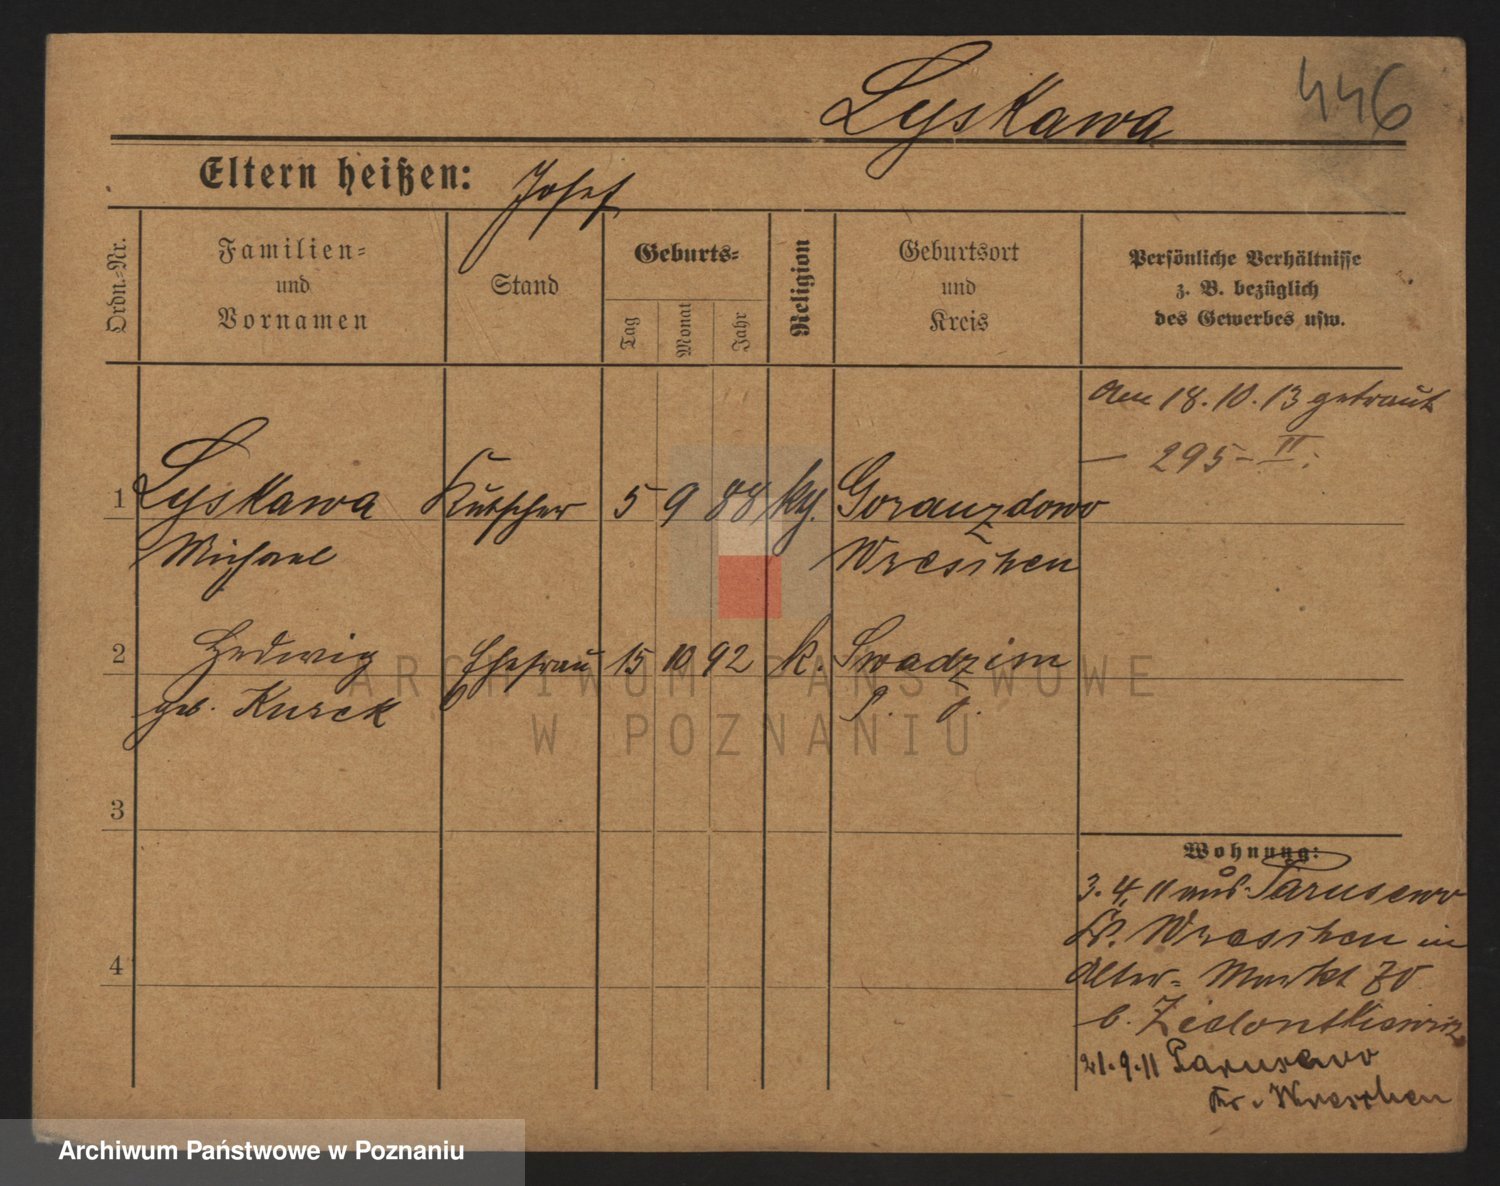 Lyskawa
446
Eltern heißen: Josef
Ordn.-Nr.
Familien-
und
Vornamen
Stand
Geburts-
Tag
Monat
Jahr
Religion
Geburtsort
und
Kreis
Persönliche Verhältnisse
z. B. bezüglich
des Gewerbes usw.
Am 18.10.13 getraut
— 295 – II.
1 Lyskawa Kutscher 5 9 88 kg.
Michael Wreschen
2 Hedwig Ehefrau 15 10 92 k. Swadzim
geb. Kurek P. g.
3
4
Wohnung:
3.4.11 aus Parusewo
Kr. Wreschen in
Alter-Markt 70
b.
21.9.11 Parusewo
Kr. Wreschen
ARCHIWUM PAŃSTWOWE
W POZNANIU
Archiwum Państwowe w Poznaniu